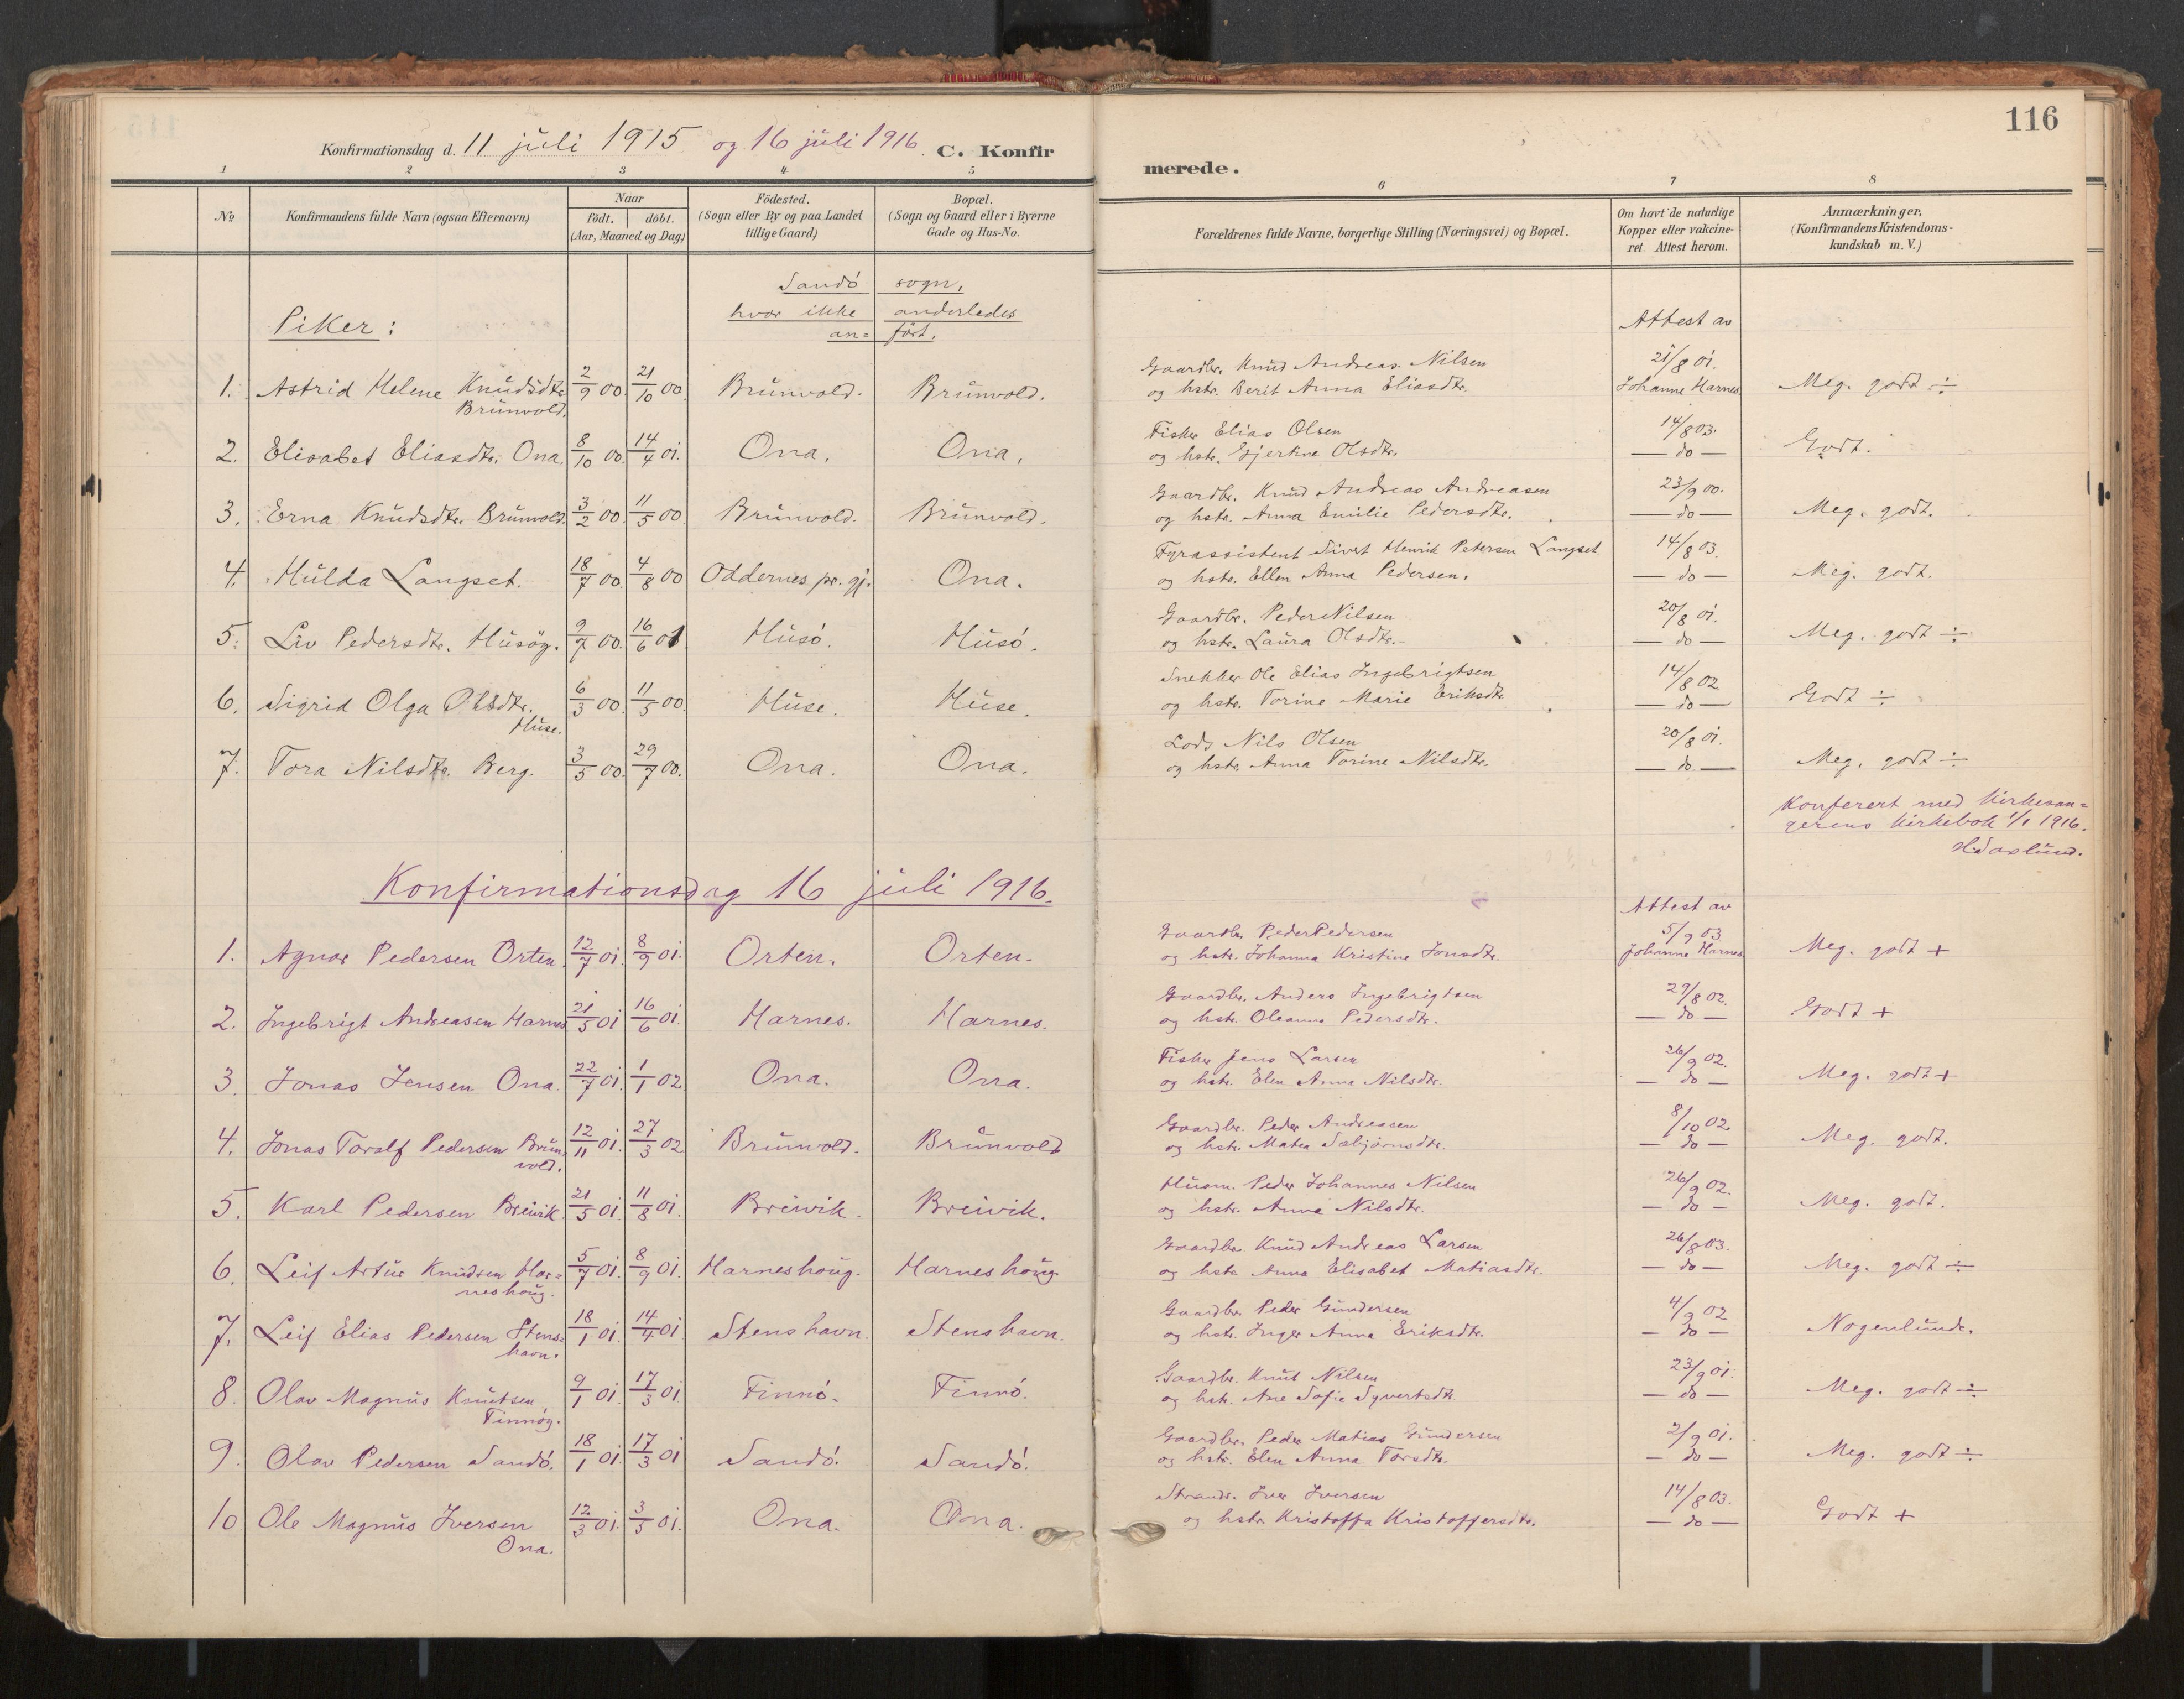 116
Konfirmationsdag d. 11 juli 1915 og 16 juli 1916. C. Konfirmerede.
1 2 3 4 5 6 7 8
No
Konfirmandens fulde Navn (ogsaa Efternavn)
Naar
födt. döbt.
(Aar, Maaned og Dag)
Födested.
(Sogn eller By og paa Landet
tillige Gaard)
Bopæl.
(Sogn og Gaard eller i Byerne
Gade og Hus-No.
Forældrenes fulde Navne, borgerlige Stilling (Næringsvei) og Bopæl.
Om havt de naturlige
Kopper eller vakcine-
ret. Attest herom.
Anmærkninger,
(Konfirmandens Kristendoms-
kundskab m. V.)
Sandö sogn,
hvor ikke anderledes
an= fört.
Piker:
Attest av
1. Astrid Helene Knudsdtr. 2/9 00. 21/10 00. Brunvold. Brunvold. Gaardbr. Knud Andreas Nilsen 21/8 01.
Brunvold. og hstr. Berit Anna Eliasdtr. Johanne Harnes. Meg. godt ÷
2. Elisabet Eliasdtr. Ona. 8/10 00. 14/4 01. Ona. Ona. Fisker Elias Olsen 14/8 03. Godt.
og hstr. Gjertine Olsdtr. — do —
3. Erna Knudsdtr. Brunvold. 3/2 00. 11/5 00. Brunvold. Brunvold. Gaardbr. Knud Andreas Andreasen 23/9 00. Meg. godt.
og hstr. Anna Emilie Pedersdtr. — do —
4. Hulda Langset. 18/7 00. 4/8 00 Oddernes pr. gj. Ona. Fyrassistent Sivert Henrik Petersen Langset 14/8 03. Meg. godt.
og hstr. Ellen Anna Pedersen. — do —
5. Liv Pedersdtr. Husöy. 9/7 00. 16/6 01. Husö. Husö. Gaardbr. Peder Nilsen 20/8 01. Meg. godt ÷
og hstr. Laura Olsdtr. — do —
6. Sigrid Olga Olsdtr. 6/3 00. 11/5 00. Huse. Huse. Snekker Ole Elias Ingebrigtsen 14/8 02 Godt ÷
Huse. og hstr. Torine Marie Eriksdtr. — do —
7. Tora Nilsdtr. Berg. 3/5 00. 29/7 00. Ona. Ona. Lods Nils Olsen 20/8 01. Meg. godt ÷
og hstr. Anna Torine Nilsdtr. — do —
Konferert med Kirkesan=
gerens Kirkebok 1/1 1916.
Konfirmationsdag 16 juli 1916.
Attest av
1. Agnar Pedersen Orten. 12/7 01. 8/9 01. Orten. Orten. Gaardbr. Peder Pedersen 5/9 03
og hstr. Johanna Kristine Jonsdtr. Johanne Harnes Meg. godt +
2. Ingebrigt Andreasen Harnes 21/5 01 16/6 01. Harnes. Harnes. Gaardbr. Anders Ingebrigtsen 29/8 02. Godt +
og hstr. Oleanna Pedersdtr. — do —
3. Jonas Jensen Ona. 22/7 01. 1/1 02 Ona. Ona. Fisker Jens Larsen 26/9 02. Meg. godt +
og hstr. Elen Anna Nilsdtr. — do —
4. Jonas Toralf Pedersen Brun= 12/11 01. 27/3 02 Brunvold. Brunvold Gaardbr. Peder Andreasen 8/10 02 Meg. godt.
vold. og hstr. Matea Sæbjörnsdtr. — do —
5. Karl Pedersen Breivik. 21/5 01. 11/8 01. Breivik. Breivik. Husm. Peder Johannes Nilsen 26/9 02. Meg. godt.
og hstr. Anna Nilsdtr. — do —
6. Leif Artur Knudsen Har= 5/7 01. 8/9 01. Harneshoug. Harneshoug. Gaardbr. Knud Andreas Larsen 26/8 03. Meg. godt ÷
neshoug. og hstr. Anna Elisabet Matiasdtr. — do —
7. Leif Elias Pedersen Stens= 18/1 01. 14/4 01 Stenshavn. Stenshavn. Gaardbr. Peder Gundersen 4/9 02 Nogenlunde.
havn. og hstr. Inger Anna Eriksdtr. — do —
8. Olav Magnus Knutsen 9/1 01. 17/3 01 Finnö. Finnö. Gaardbr. Knut Nilsen 23/9 01. Meg. godt ÷
Finnöy. og hstr. Ane Sofie Syvertsdtr. — do —
9. Olav Pedersen Sandö. 18/1 01. 17/3 01 Sandö. Sandö. Gaardbr. Peder Matias Gundersen 2/9 01. Meg. godt ÷
og hstr. Elen Anna Torsdtr. — do —
10 Ole Magnus Iversen 12/3 01. 3/5 01. Ona. Ona. Strands. Iver Iversen 14/8 03. Godt +
Ona. og hstr. Kristoffa Kristoffersdtr. — do —